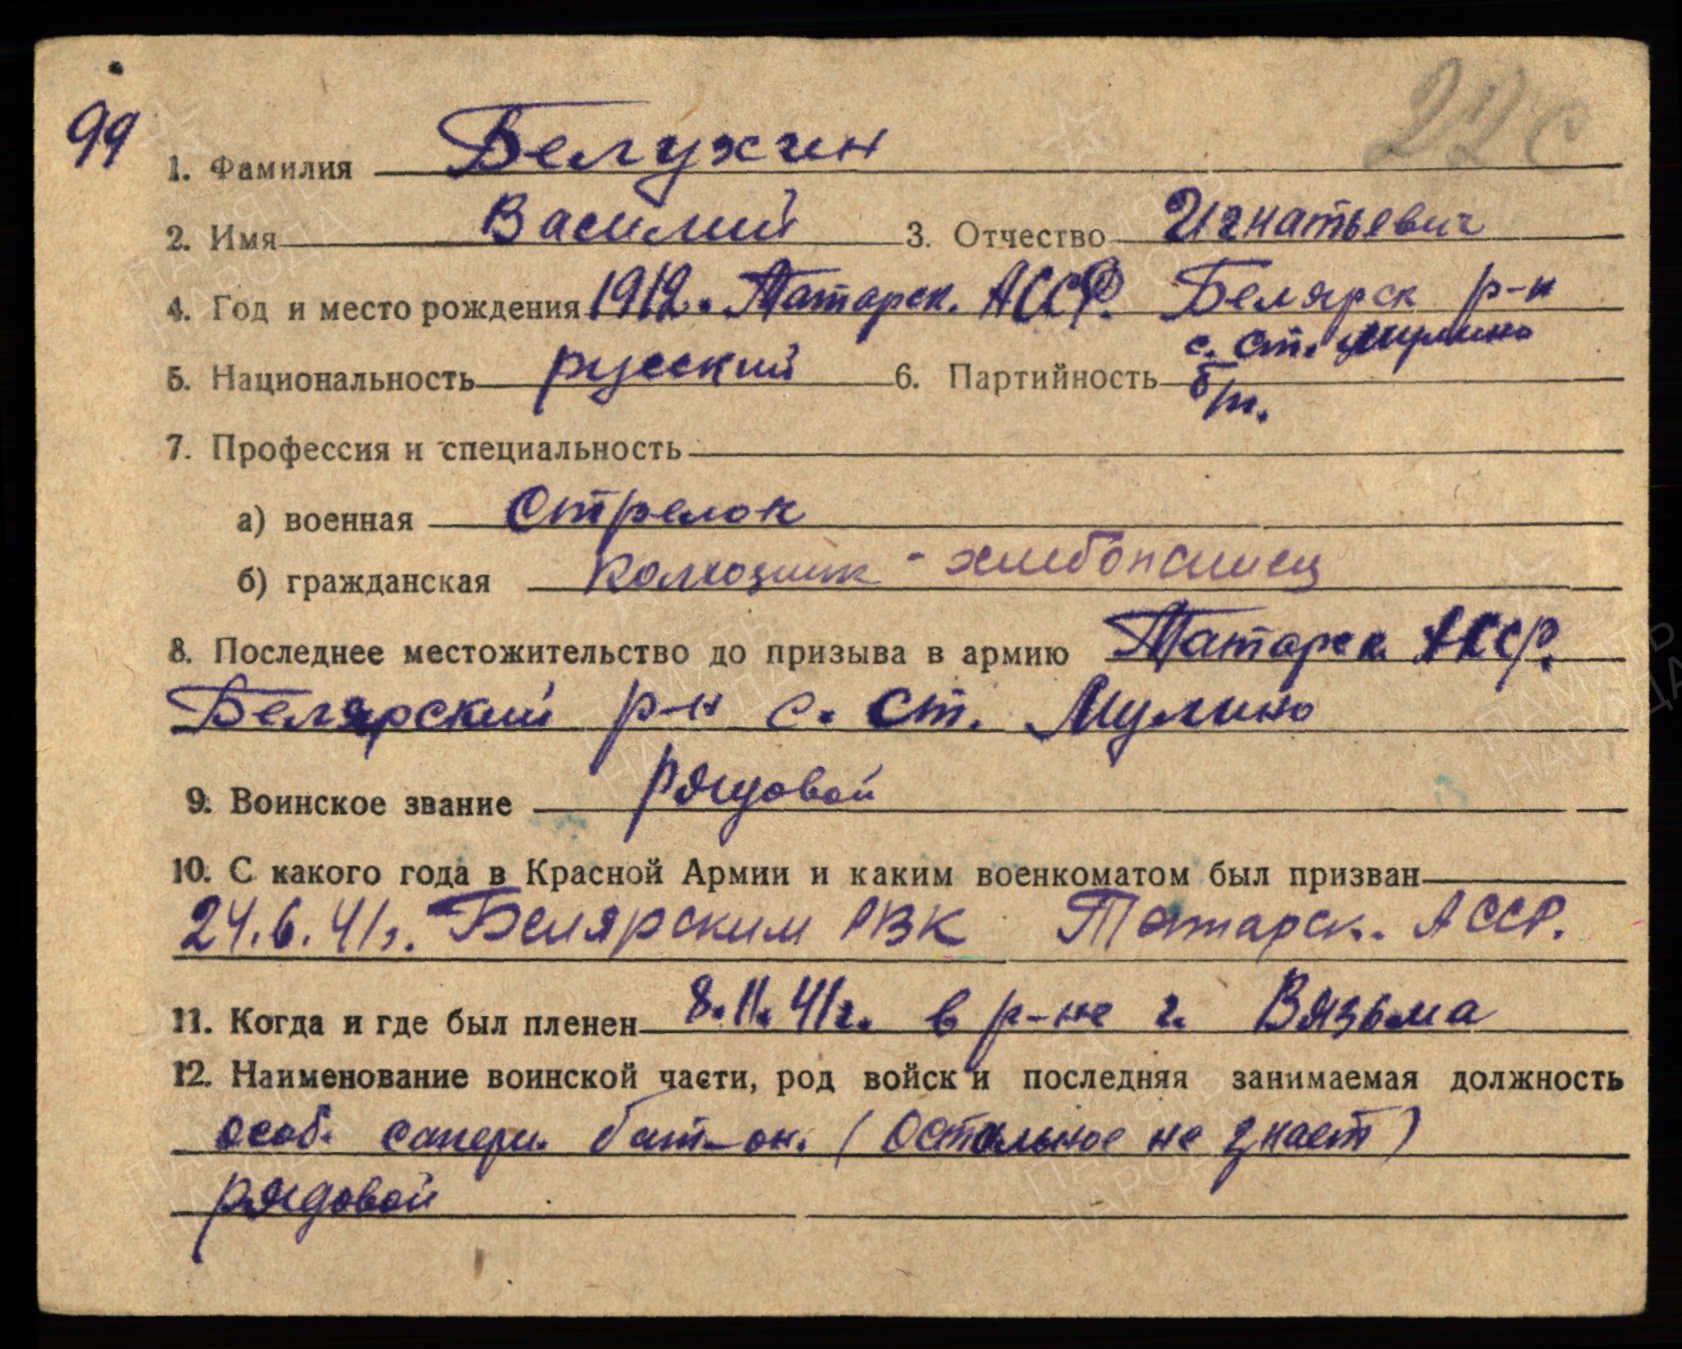 99
22 с
1. Фамилия Белухин
2. Имя Василий 3. Отчество Игнатьевич
4. Год и место рождения 1912. Татарск. АССР. Белярск р-н
с. ст. Мулино
5. Национальность русский 6. Партийность б/п.
7. Профессия и специальность
а) военная Стрелок
б) гражданская колхозник - хлебопашец
8. Последнее местожительство до призыва в армию Татарск. АССР.
Белярский р-н с. ст. Мулино
9. Воинское звание рядовой
10. С какого года в Красной Армии и каким военкоматом был призван
24.6.41г. Белярским РВК Татарск. АССР.
11. Когда и где был пленен 8.11.41г. в р-не г. Вязьма
12. Наименование воинской части, род войск и последняя занимаемая должность
особ. саперн. бат-он. (Остальное не знает)
рядовой
ПАМЯТЬ НАРОДА